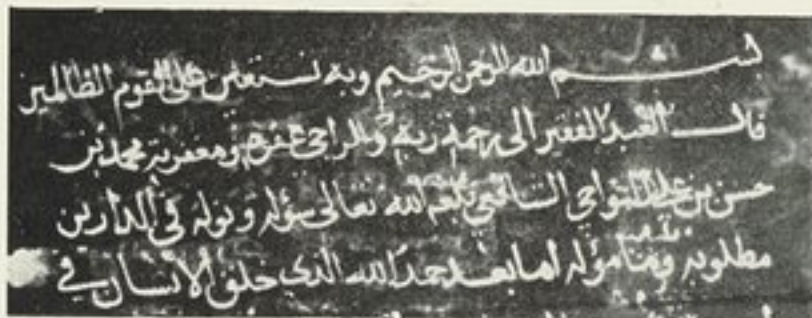 بسم الله الرحمن الرحيم وبه نستعين على القوم الظالمين
قال العبد الفقير الى رحمة ربه والراجى عفوه ومغفرته محمد بن
حسن بن على النواجى الشافعى بلغه الله تعالى سؤله ونوله فى الدارين
مطلوبه ومأموله اما بعد حمد الله الذى خلق الانسان فى